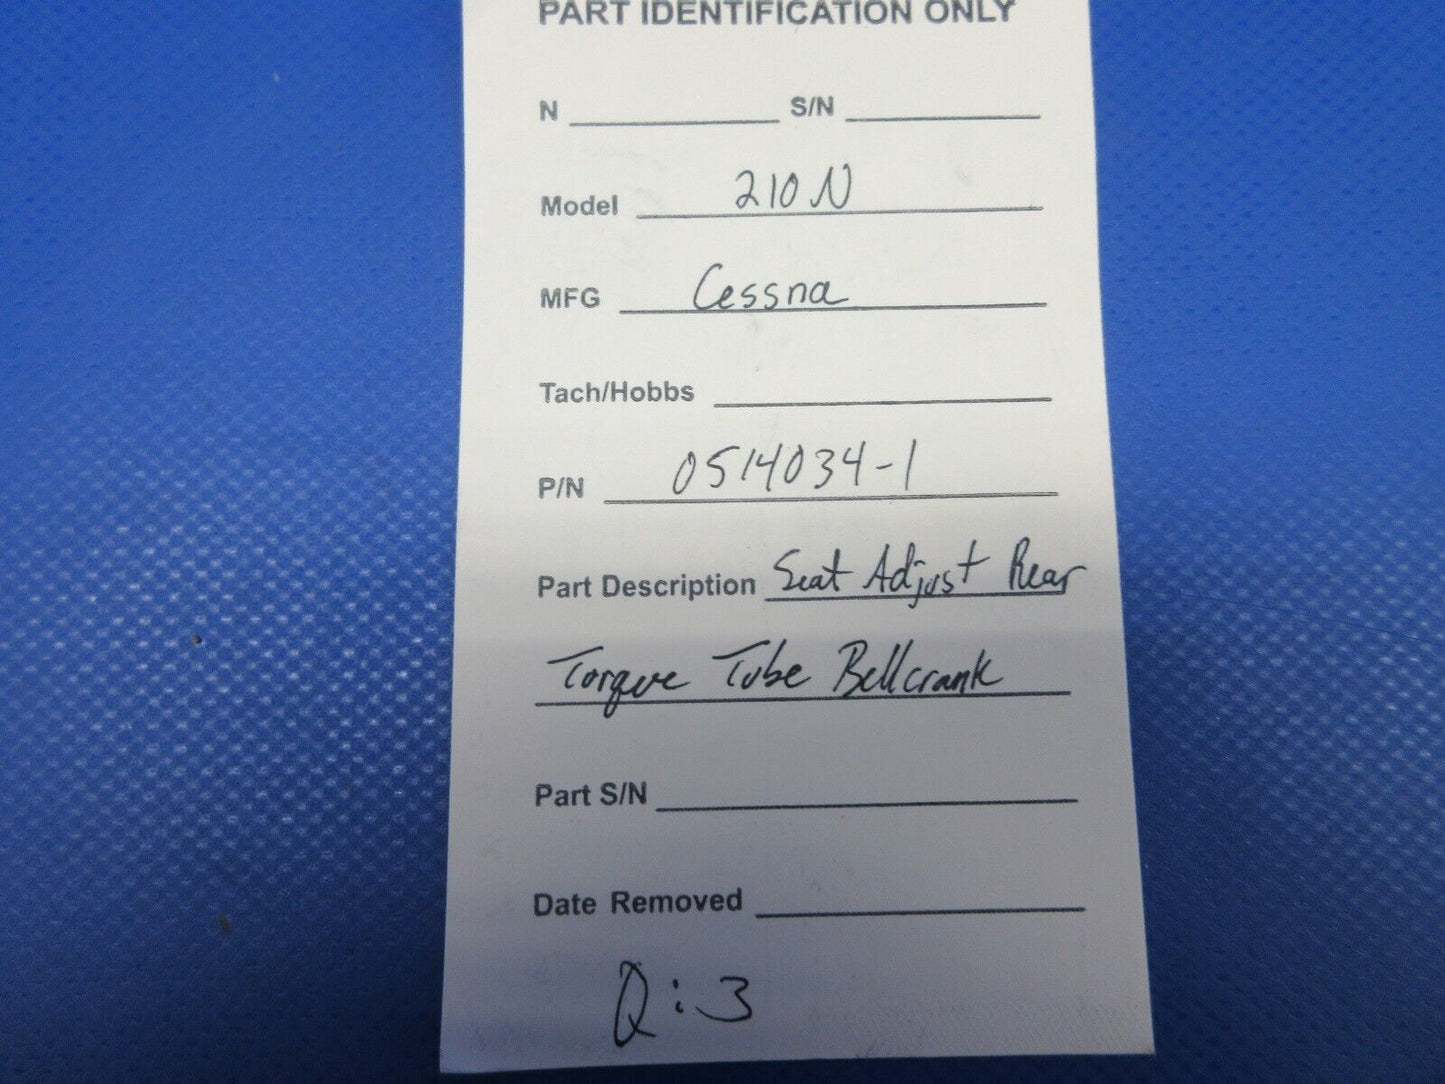 PART IDENTIFICATION ONLY
N S/N
Model 210N
MFG Cessna
Tach/Hobbs
P/N 0514034-1
Part Description Seat Adjust Rear
Torque Tube Bellcrank
Part S/N
Date Removed
Q:3